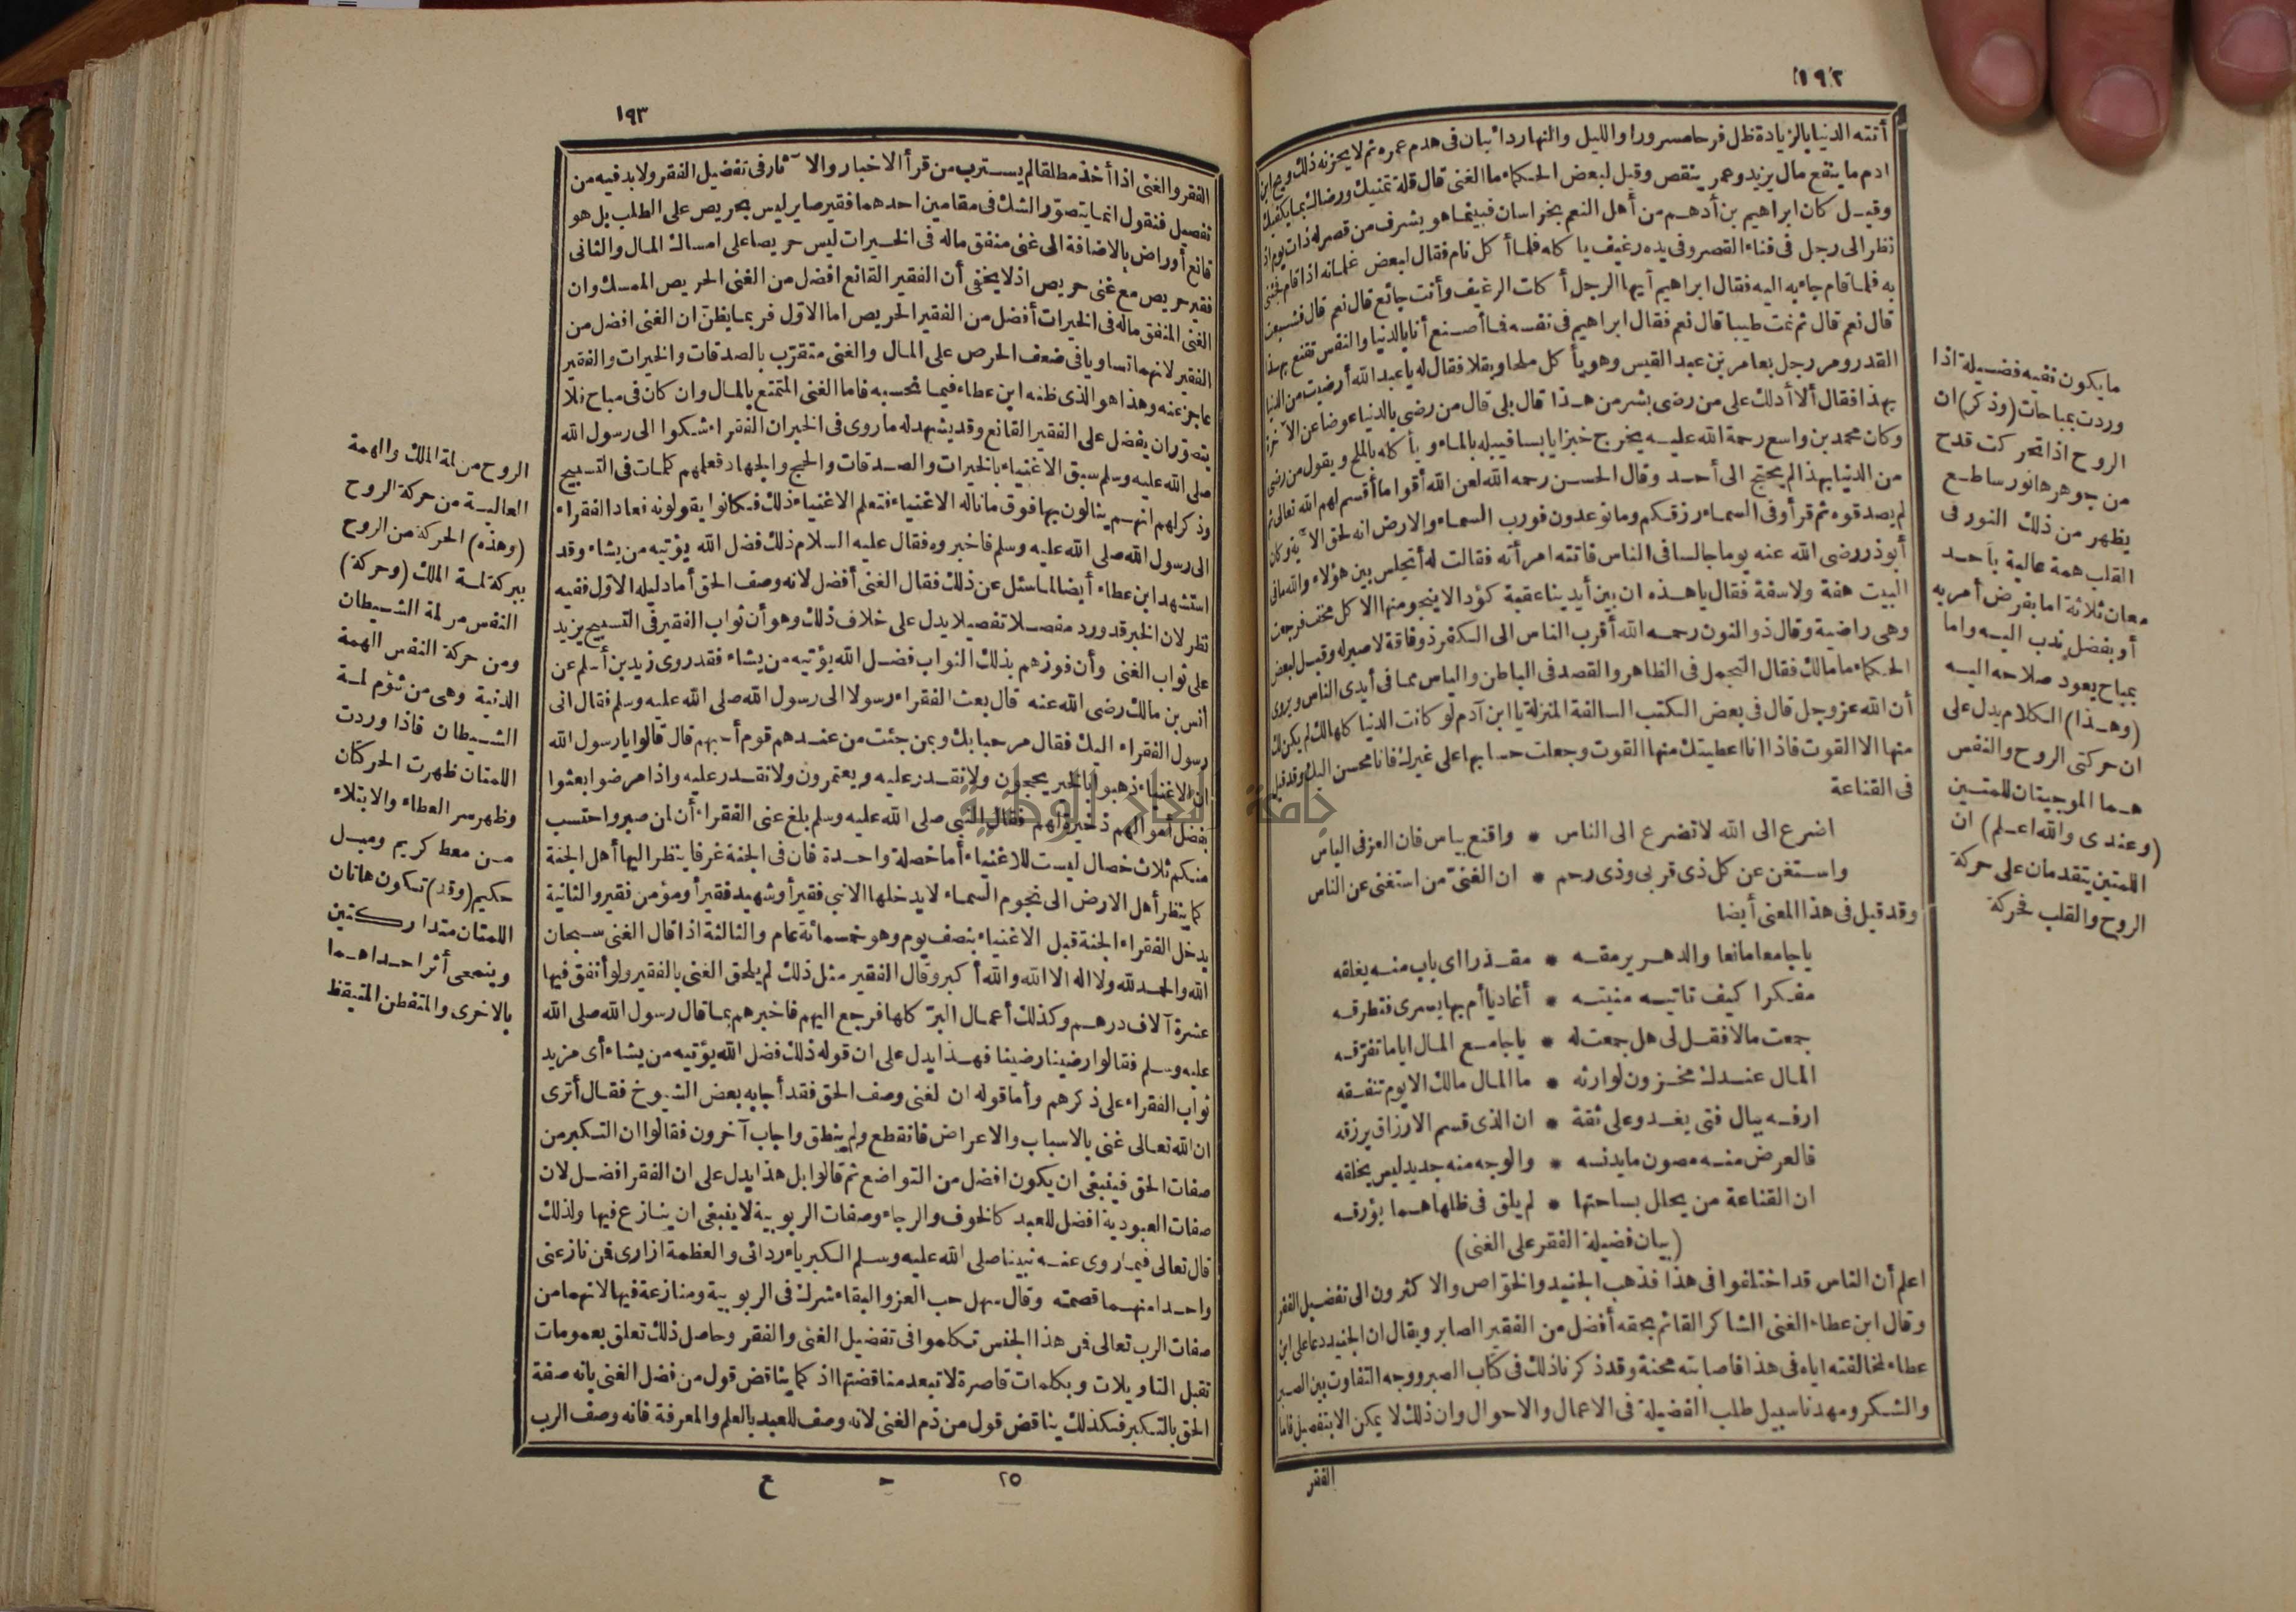 ١٩٢
أتته الدنيا بالزيادة ظل فرحا مسرورا والليل والنهار دائبان في هدم عمره ثم لا يحزنه ذلك ويح ابن
ادم ما ينفع مال يزيد وعمر ينقص وقيل لبعض الحكماء ما الغنى قال قلة تمنيك ورضاك بما يكفيك
وقيل كان ابراهيم بن أدهم من أهل النعم بخراسان فبينما هو يشرف من قصر له ذات يوم اذ
نظر الى رجل في فناء القصر وفي يده رغيف يا كله فلما أ كل نام فقال لبعض غلمانه اذا قام فجئني
به فلما قام جاء به اليه فقال ابراهيم أيها الرجل أ كلت الرغيف وأنت جائع قال نعم قال فشبعت
قال نعم قال ثم نمت طيبا قال نعم فقال ابراهيم في نفسه فما أصنع أنا بالدنيا والنفس تقنع بهذا
القدر ومر رجل بعامر بن عبد القيس وهو يأ كل ملحا وبقلا فقال له يا عبد الله أرضيت من الدنيا
بهذا فقال ألا أدلك على من رضى بشر من هذا قال بلى قال من رضى بالدنيا عوضا عن الآ خرة
وكان محمد بن واسع رحمة الله عليه يخرج خبزا يابسا فيبله بالماء و يأ كله بالملح ويقول من رضى
من الدنيا بهذا لم يحتج الى أحد وقال الحسن رحمه الله لعن الله أقواما أقسم لهم الله تعالى ثم
لم يصدقوه ثم قرأ وفي السماء رزقكم وما توعدون فورب السماء والارض انه لحق الآ ية وكان
أبو ذر رضى الله عنه يوما جالسا في الناس فاتته امرأته فقالت له أتجلس بين هؤلاء والله ما في
البيت هفة ولا سفة فقال يا هذه ان بين أيدينا عقبة كؤدا لا ينجو منها الا كل مخف فرجعت
وهى راضية وقال ذو النون رحمه الله أقرب الناس الى الكفر ذو فاقة لا صبر له وقيل لبعض
الحكماء ما مالك فقال التجمل في الظاهر والقصد في الباطن والياس مما في أيدى الناس و يروى
أن الله عز وجل قال في بعض الكتب السالفة المنزلة يا ابن آدم لو كانت الدنيا كلها لك لم يكن لك
منها الا القوت فاذا انا اعطيتك منها القوت وجعلت حسابها على غيرك فانا محسن اليك وقد قيل
في القناعة
اضرع الى الله لا تضرع الى الناس * واقنع بياس فان العز في الياس
واستغن عن كل ذى قربى وذى رحم * ان الغنىّ من استغنى عن الناس
وقد قيل في هذا المعنى أيضا
يا جامعا مانعا والدهر يرمقه * مقذرا اى باب منه يغلقه
مفكرا كيف تاتيه منيته * أغاديا أم بها يسرى فتطرقه
جمعت مالا فقل لى هل جمعت له * يا جامع المال اياما تفرّقه
المال عندك مخزون لوارثه * ما المال مالك الا يوم تنفقه
ارفه ببال فتى يغدو على ثقة * ان الذى قسم الارزاق يرزقه
فالعرض منه مصون ما يدنسه * والوجه منه جديد ليس يخلقه
ان القناعة من يحلل بساحتها * لم يلق في ظلها هما يؤرقه
(بيان فضيلة الفقر على الغنى)
اعلم أن الناس قد اختلفوا في هذا فذهب الجنيد والخوّاص والا كثرون الى تفضيل الفقر
وقال ابن عطاء الغنى الشاكر القائم بحقه أفضل من الفقير الصابر ويقال ان الجنيد دعا على ابن
عطاء لمخالفته اياه في هذا فأصابته محنة وقد ذكرنا ذلك في كتاب الصبر ووجه التفاوت بين الصبر
والشكر ومهدنا سبيل طلب الفضيلة في الاعمال والاحوال وان ذلك لا يمكن الا بتفصيل فاما
الفقر
ما يكون نقيه فضيلة اذا
وردت بمباحات (وذكر) ان
الروح اذا تحركت قدح
من جوهرها نور ساطع
يظهر من ذلك النور فى
القلب همة عالية باحد
معان ثلاثة اما بفرض أمر به
أو بفضل ندب اليه واما
بمباح يعود صلاحه اليه
(وهذا) الكلام يدل على
ان حركتى الروح والنفس
هما الموجبتان للمتين
(وعندى والله اعلم) ان
اللمتين يتقدمان على حركة
الروح والقلب فحركة
١٩٣
الفقر والغنى اذا أخذ مطلقا لم يسترب من قرأ الاخبار والا ٓثار في تفضيل الفقر ولا بد فيه من
تفصيل فنقول انما يتصوّر الشك في مقامين احدهما فقير صابر ليس بحريص على الطلب بل هو
قانع أو راض بالاضافة الى غنى منفق ماله في الخيرات ليس حريصا على امساك المال والثانى
فقير حريص مع غنى حريص اذ لا يخفى أن الفقير القانع افضل من الغنى الحريص الممسك وان
الغنى المنفق ماله في الخيرات أفضل من الفقير الحريص اما الاوّل فربما يظنّ ان الغنى افضل من
الفقير لانهما تساويا في ضعف الحرص على المال والغنى متقرّب بالصدقات والخيرات والفقير
عاجز عنه وهذا هو الذى ظنه ابن عطاء فيما نحسبه فاما الغنى المتمتع بالمال وان كان في مباح فلا
يتصوّر ان يفضل على الفقير القانع وقد يشهد له ما روى في الخبر ان الفقراء شكوا الى رسول الله
صلى الله عليه وسلم سبق الاغنياء بالخيرات والصدقات والحج والجهاد فعلمهم كلمات في التسبيح
وذكر لهم انهم ينالون بها فوق ما ناله الاغنياء فتعلم الاغنياء ذلك فكانوا يقولونه فعاد الفقراء
الى رسول الله صلى الله عليه وسلم فاخبروه فقال عليه السلام ذلك فضل الله يؤتيه من يشاء وقد
استشهد ابن عطاء أيضا لما سئل عن ذلك فقال الغنى أفضل لانه وصف الحق أما دليله الاوّل ففيه
نظر لان الخبر قد ورد مفصلا تفصيلا يدل على خلاف ذلك وهو أن ثواب الفقير في التسبيح يزيد
على ثواب الغنى وأن فوزهم بذلك الثواب فضل الله يؤتيه من يشاء فقد روى زيد بن أسلم عن
انس بن مالك رضى الله عنه قال بعث الفقراء رسولا الى رسول الله صلى الله عليه وسلم فقال انى
رسول الفقراء اليك فقال مرحبا بك وبمن جئت من عندهم قوم أحبهم قال قالوا يا رسول الله
ان الاغنياء ذهبوا بالخير يحجون ولا نقدر عليه و يعتمرون ولا نقدر عليه واذا مرضوا بعثوا
بفضل أموالهم ذخيرة لهم فقال النبي صلى الله عليه وسلم بلغ عنى الفقراء أن لمن صبر واحتسب
منكم ثلاث خصال ليست للاغنياء أما خصلة واحدة فان في الجنة غرفا ينظر اليها أهل الجنة
كما ينظر أهل الارض الى نجوم السماء لا يدخلها الا نبي فقير أو شهيد فقير أو مؤمن فقير والثانية
يدخل الفقراء الجنة قبل الاغنياء بنصف يوم وهو خمسمائة عام والثالثة اذا قال الغنى سبحان
الله والحمد لله ولا اله الا الله والله أكبر وقال الفقير مثل ذلك لم يلحق الغنى بالفقير ولو أنفق فيها
عشرة آلاف درهم وكذلك أعمال البرّ كلها فرجع اليهم فاخبرهم بما قال رسول الله صلى الله
عليه وسلم فقالوا رضينا رضينا فهذا يدل على ان قوله ذلك فضل الله يؤتيه من يشاء أى مزيد
ثواب الفقراء على ذكرهم وأما قوله ان لغنى وصف الحق فقد أجابه بعض الشيوخ فقال أترى
ان الله تعالى غنى بالاسباب والاعراض فانقطع ولم ينطق واجاب آخرون فقالوا ان التكبر من
صفات الحق فينبغى ان يكون افضل من التواضع ثم قالوا بل هذا يدل على ان الفقر افضل لان
صفات العبودية افضل للعبد كالخوف والرجاء وصفات الربوبية لا ينبغى ان ينازع فيها ولذلك
قال تعالى فيما روى عنه نبينا صلى الله عليه وسلم الكبرياء ردائى والعظمة ازارى فمن نازعنى
واحدا منهما قصمته وقال سهل حب العز والبقاء شرك في الربوبية ومنازعة فيها لانهما من
صفات الرب تعالى فمن هذا الجنس تكلموا في تفضيل الغنى والفقر وحاصل ذلك تعلق بعمومات
تقبل التاويلات وبكلمات قاصرة لا تبعد مناقضتها اذ كما يناقض قول من فضل الغنى بانه صفة
الحق بالتكبر فكذلك يناقض قول من ذم الغنى لانه وصف للعبد بالعلم والمعرفة فانه وصف الرب
٢٥ - ع
الروح من لمة الملك والهمة
العالية من حركة الروح
(وهذه) الحركة من الروح
ببركة لمة الملك (وحركة)
النفس من لمة الشيطان
ومن حركة النفس الهمة
الدنية وهى من شؤم لمة
الشيطان فاذا وردت
اللمتان ظهرت الحركتان
وظهر سر العطاء والابتلاء
من معط كريم ومبل
حكيم (وقد) تكون هاتان
اللمتان متداركتين
وينمحى أثر احداهما
بالاخرى والمتفطن المتيقظ
جامعة النجاح الوطنية